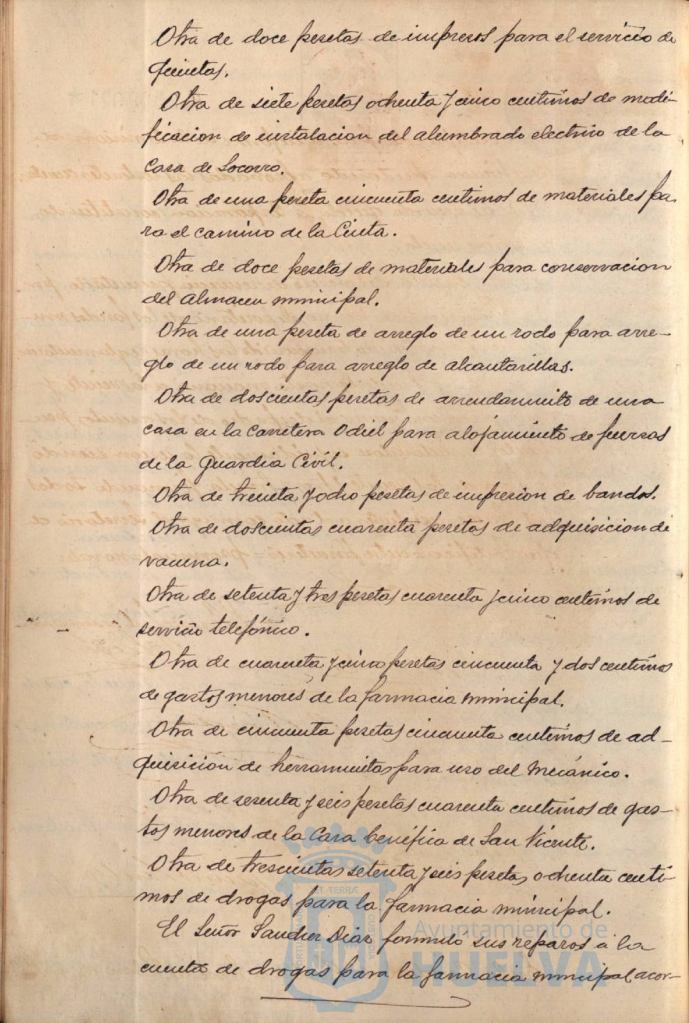 Otra de doce pesetas de impresos para el servicio de
quintas.
Otra de siete pesetas ochenta y cinco centimos de modi-
ficacion de instalacion del alumbrado electrico de la
Casa de Socorro.
Otra de una peseta cincuenta centimos de materiales pa-
ra el camino de la Cinta.
Otra de doce pesetas de materiales para conservacion
del almacen municipal.
Otra de una peseta de arreglo de un rodo para arre-
glo de un rodo para arreglo de alcantarillas.
Otra de doscientas pesetas de arrendamiento de una
casa en la Carretera Odiel para alojamiento de fuerzas
de la Guardia Civil.
Otra de treinta y ocho pesetas de impresion de bandos.
Otra de doscientas cuarenta pesetas de adquisicion de
vacuna.
Otra de setenta y tres pesetas cuarenta y cinco centimos de
servicio telefónico.
Otra de cuarenta y cinco pesetas cincuenta y dos centimos
de gastos menores de la farmacia municipal.
Otra de cincuenta pesetas cincuenta centimos de ad-
quisición de herramientas para uso del Mecánico.
Otra de sesenta y seis pesetas cuarenta centimos de gas-
tos menores de la Casa benéfica de San Vicente.
Otra de trescientas setenta y seis pesetas ochenta centi-
mos de drogas para la farmacia municipal.
El Señor Sanchez Diaz formuló sus reparos a la
cuenta de drogas para la farmacia municipal, acor-
Ayuntamiento de
HUELVA